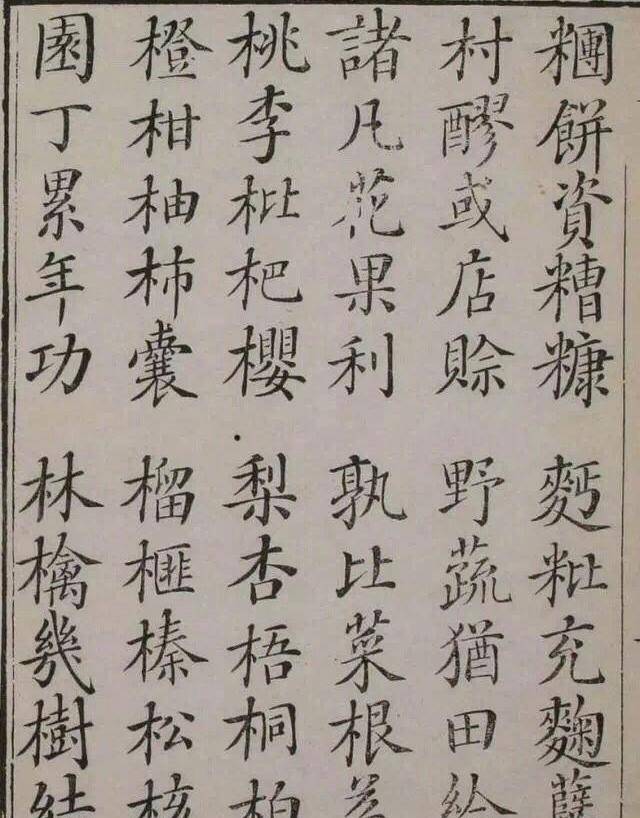 糰餅資糟糠 麫粃充麴
村醪或店賒 野蔬猶田給
諸凡花果利 孰比菜根
桃李枇杷櫻 梨杏梧桐柏
橙柑柚柿囊 榴榧榛松核
園丁累年功 林檎幾樹結